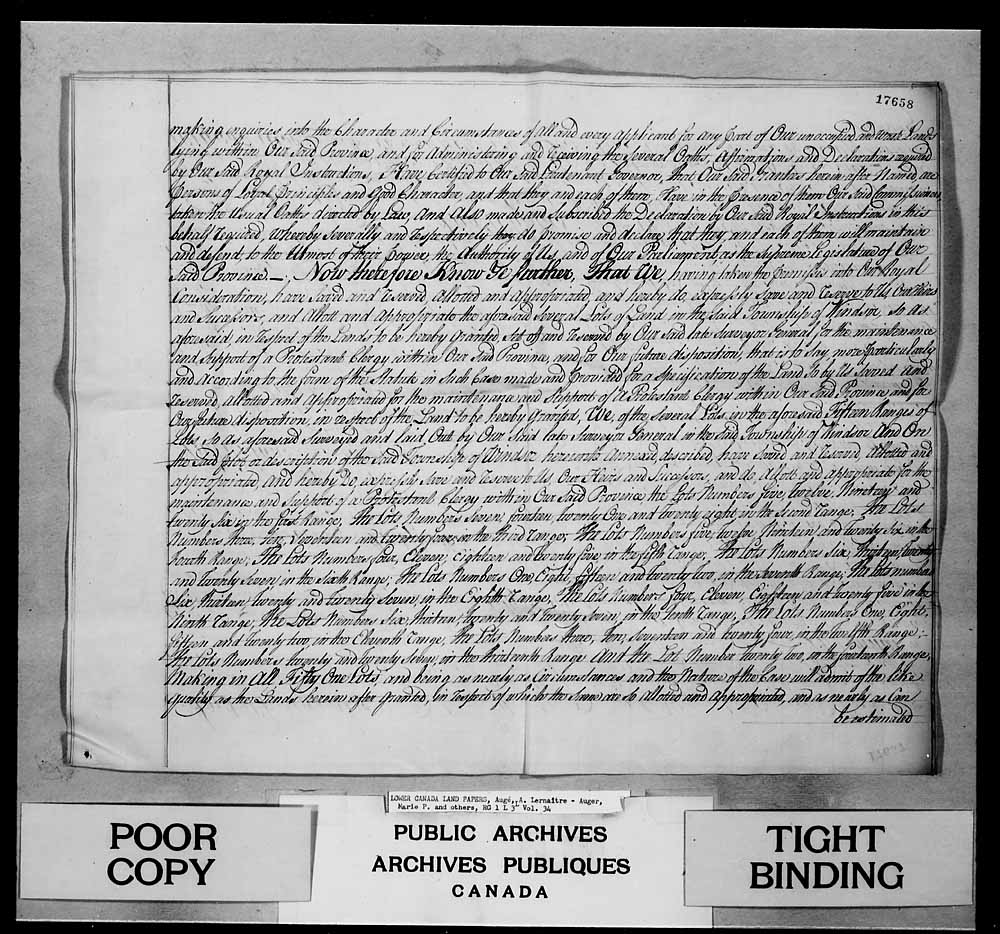 17658
making enquiries into the Character and Circumstances of all and every applicant for any part of Our unoccupied and waste Lands
lying within Our Said Province, and for Administring and receiving the several Oaths, Affirmations and Declarations required
by Our Said Royal Instructions, Have Certified to Our Said Lieutenant Governor, that Our Said Grantees herein after Named, are
Persons of Loyal Principles and Good Character, and that they and each of them, Have in the Presence of them Our Said Commissioners
taken the Usual Oaths directed by Law, and Also made and Subscribed the Declaration by Our Said Royal Instructions in this
behalf required, whereby Severally and respectively they do promise and declare, that they and each of them will maintain
and defend to the Utmost of their power, the Authority of Us, and of Our Parliament, as the Supreme Legislature of Our
Said Province. Now therefore Know Ye further, That We, having taken the Premises into Our Royal
Consideration, have Saved and reserved, allotted and appropriated, and hereby do, expressly Save and reserve to Us, Our Heirs
and Successors, and allott and appropriate the aforesaid Several Lots of Land in the Said Township of Windsor, So as
aforesaid, in respect of the Lands to be hereby Granted, Set off and reserved by Our Said late Surveyor General, for the maintenance
and Support of a Protestant Clergy within Our Said Province, and for Our future disposition, that is to say, more particularly
and according to the form of the Statute in Such Case made and provided for a Specification of the Land to by Us Saved and
reserved, Allotted and appropriated for the maintenance and Support of a Protestant Clergy within Our Said Province and for
Our future disposition, in respect of the Land to be hereby Granted, We, of the Several Lots, in the aforesaid Fifteen Ranges of
Lots, So as aforesaid Surveyed and laid Out by Our Said late Surveyor General in the Said Township of Windsor And On
the Said Plot or description of the Said Township of Windsor herewith Annexed, described, have Saved and reserved, Allotted and
appropriated, and hereby Do, expressly Save and reserve to Us, Our Heirs and Successors, and do, Allott, and appropriate for the
maintenance and Support of a Protestant Clergy within Our Said Province, the Lots Numbers five, twelve, Nineteen and
twenty Six, in the first Range; the Lots Numbers Seven, fourteen, twenty One and twenty eight, in the Second range; the Lots
Numbers three, ten, Seventeen and twenty four, in the third range; the Lots Numbers five, twelve, Nineteen and twenty Six, in the
fourth Range; The Lots Numbers four, Eleven, eighteen and twenty five in the fifth range; the Lots Numbers Six, thirteen, twenty
and twenty Seven, in the Sixth Range; the Lots Numbers One, Eight, fifteen and twenty two, in the Seventh Range; the Lots numbers
Six, thirteen, twenty and twenty Seven, in the Eighth range; the Lots Numbers Four, Eleven, Eighteen and twenty five in the
Ninth range; the Lots Numbers Six, thirteen, twenty and twenty Seven, in the tenth range; The Lots Numbers One, Eight,
fifteen and twenty two, in the Eleventh range; the Lots Numbers three, ten, Seventeen and twenty four, in the twelfth Range;
the Lots Numbers twenty and twenty Seven, in the thirteenth Range And the Lot Number twenty two, in the fourteenth Range,
Making in all Fifty One Lots and being as nearly as Circumstances and the Nature of the Case will admit of the like
quality as the Lands herein after granted, in respect of which the same are So allotted and appropriated, and as nearly as Can
be estimated
LOWER CANADA LAND PAPERS, Augé, A. Lernaitre - Auger,
Marie P. and others, RG 1 L 3" Vol. 34
POOR
COPY
PUBLIC ARCHIVES
ARCHIVES PUBLIQUES
CANADA
TIGHT
BINDING